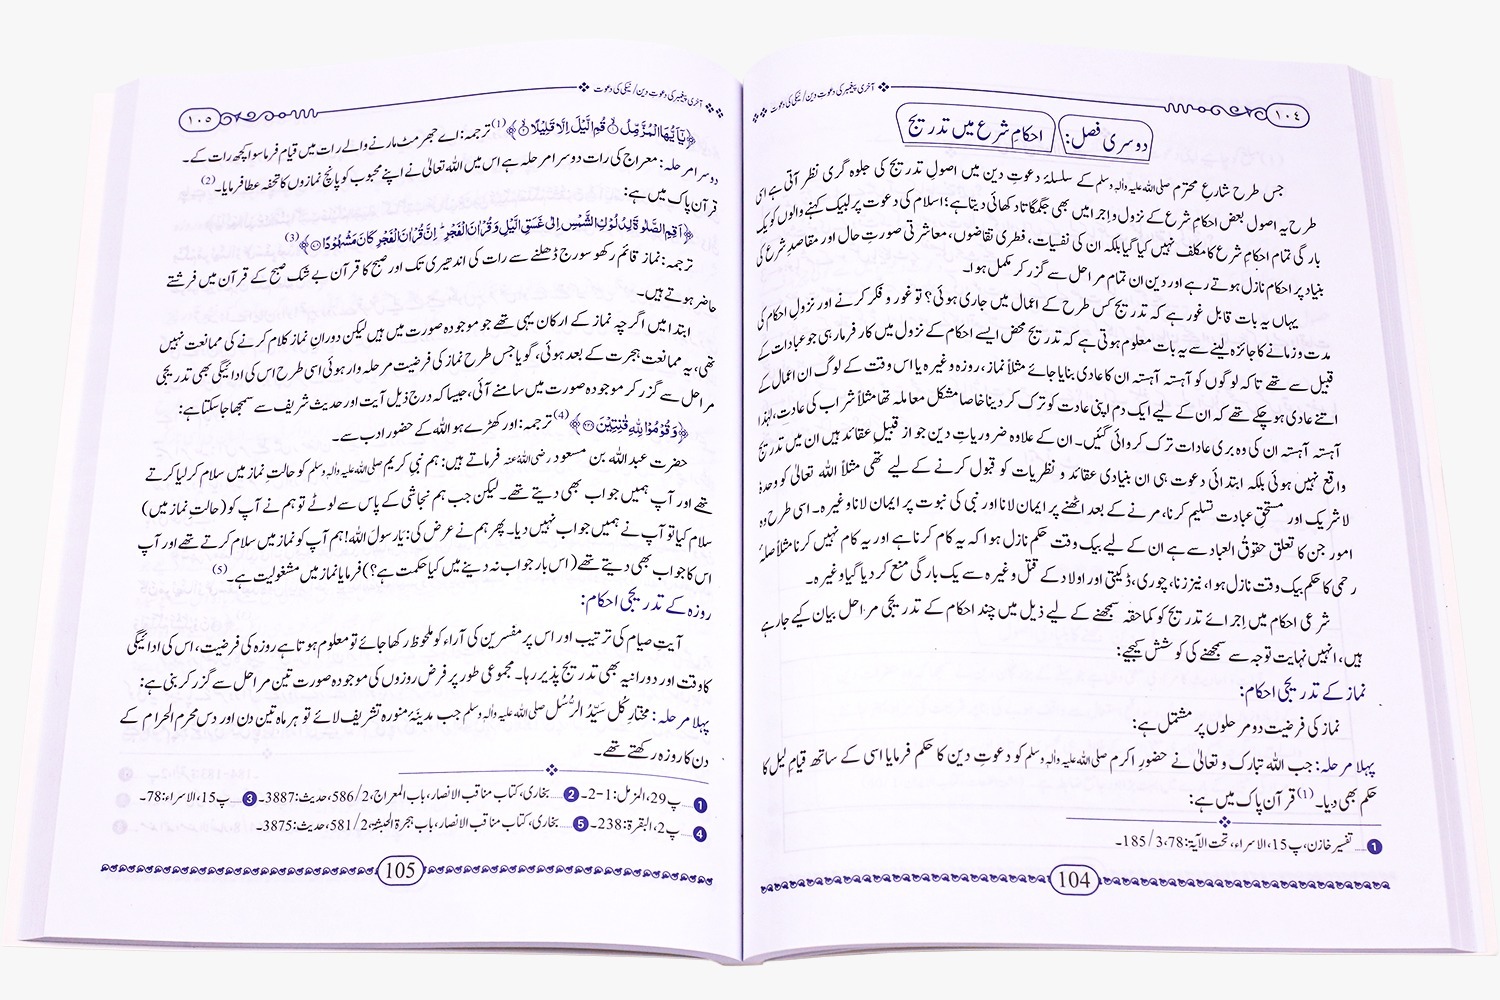 ١٠٤
آخری پیغمبر کی دعوتِ دین/نیکی کی دعوت
دوسری فصل: احکامِ شرع میں تدریج
جس طرح شارعِ محترم صلی اللہ علیہ واٰلہٖ وسلم کے سلسلۂ دعوتِ دین میں اصولِ تدریج کی جلوہ گری نظر آتی ہے اسی
طرح یہ اصول بعض احکامِ شرع کے نزول و اِجرا میں بھی جگمگاتا دکھائی دیتا ہے؛ اسلام کی دعوت پر لبیک کہنے والوں کو یک
بارگی تمام احکامِ شرع کا مکلف نہیں کیا گیا بلکہ ان کی نفسیات، فطری تقاضوں، معاشرتی صورتِ حال اور مقاصدِ شرع کی
بنیاد پر احکام نازل ہوتے رہے اور دین ان تمام مراحل سے گزر کر مکمل ہوا۔
یہاں یہ بات قابلِ غور ہے کہ تدریج کس طرح کے اعمال میں جاری ہوئی؟ تو غور و فکر کرنے اور نزولِ احکام کی
مدت و زمانے کا جائزہ لینے سے یہ بات معلوم ہوتی ہے کہ تدریج محض ایسے احکام کے نزول میں کار فرما رہی جو عبادات کے
قبیل سے تھے تاکہ لوگوں کو آہستہ آہستہ ان کا عادی بنایا جائے مثلاً نماز، روزہ وغیرہ یا اس وقت کے لوگ ان اعمال کے
اتنے عادی ہو چکے تھے کہ ان کے لیے ایک دم اپنی عادت کو ترک کر دینا خاصا مشکل معاملہ تھا مثلاً شراب کی عادت، لہٰذا
آہستہ آہستہ ان کی وہ بری عادات ترک کروائی گئیں۔ ان کے علاوہ ضروریاتِ دین جو از قبیلِ عقائد ہیں ان میں تدریج
واقع نہیں ہوئی بلکہ ابتدائی دعوت ہی ان بنیادی عقائد و نظریات کو قبول کرنے کے لیے تھی مثلاً اللہ تعالیٰ کو وحدہٗ
لا شریک اور مستحقِ عبادت تسلیم کرنا، مرنے کے بعد اٹھنے پر ایمان لانا اور نبی کی نبوت پر ایمان لانا وغیرہ۔ اسی طرح وہ
امور جن کا تعلق حقوقُ العباد سے ہے ان کے لیے بیک وقت حکم نازل ہوا کہ یہ کام کرنا ہے اور یہ کام نہیں کرنا مثلاً صلۂ
رحمی کا حکم بیک وقت نازل ہوا، نیز زنا، چوری، ڈکیتی اور اولاد کے قتل وغیرہ سے یک بارگی منع کر دیا گیا وغیرہ۔
شرعی احکام میں اِجرائے تدریج کو کماحقہ سمجھنے کے لیے ذیل میں چند احکام کے تدریجی مراحل بیان کیے جا رہے
ہیں، انہیں نہایت توجہ سے سمجھنے کی کوشش کیجیے:
نماز کے تدریجی احکام:
نماز کی فرضیت دو مرحلوں پر مشتمل ہے:
پہلا مرحلہ: جب اللہ تبارک و تعالیٰ نے حضورِ اکرم صلی اللہ علیہ واٰلہٖ وسلم کو دعوتِ دین کا حکم فرمایا اسی کے ساتھ قیامِ لیل کا
حکم بھی دیا۔(1) قرآن پاک میں ہے:
1 ..... تفسیر خازن، پ15، الاسراء، تحت الآیۃ:78، 3/185۔
104
آخری پیغمبر کی دعوتِ دین/نیکی کی دعوت
١٠٥
﴿یٰۤاَیُّهَا الْمُزَّمِّلُۙ۝ قُمِ الَّیْلَ اِلَّا قَلِیْلًاۙ۝﴾(1) ترجمہ: اے جھرمٹ مارنے والے رات میں قیام فرما سوا کچھ رات کے۔
دوسرا مرحلہ: معراج کی رات دوسرا مرحلہ ہے اس میں اللہ تعالیٰ نے اپنے محبوب کو پانچ نمازوں کا تحفہ عطا فرمایا۔(2)
قرآن پاک میں ہے:
﴿اَقِمِ الصَّلٰوةَ لِدُلُوْكِ الشَّمْسِ اِلٰى غَسَقِ الَّیْلِ وَ قُرْاٰنَ الْفَجْرِؕ اِنَّ قُرْاٰنَ الْفَجْرِ كَانَ مَشْهُوْدًا۝﴾(3)
ترجمہ: نماز قائم رکھو سورج ڈھلنے سے رات کی اندھیری تک اور صبح کا قرآن بے شک صبح کے قرآن میں فرشتے
حاضر ہوتے ہیں۔
ابتدا میں اگرچہ نماز کے ارکان یہی تھے جو موجودہ صورت میں ہیں لیکن دورانِ نماز کلام کرنے کی ممانعت نہیں
تھی، یہ ممانعت ہجرت کے بعد ہوئی، گویا جس طرح نماز کی فرضیت مرحلہ وار ہوئی اسی طرح اس کی ادائیگی بھی تدریجی
مراحل سے گزر کر موجودہ صورت میں سامنے آئی، جیسا کہ درج ذیل آیت اور حدیث شریف سے سمجھا جا سکتا ہے:
﴿وَ قُوْمُوْا لِلّٰهِ قٰنِتِیْنَ۝﴾(4) ترجمہ: اور کھڑے ہو اللہ کے حضور ادب سے۔
حضرت عبد اللہ بن مسعود رضی اللہ عنہ فرماتے ہیں: ہم نبی کریم صلی اللہ علیہ واٰلہٖ وسلم کو حالتِ نماز میں سلام کر لیا کرتے
تھے اور آپ ہمیں جواب بھی دیتے تھے۔ لیکن جب ہم نجاشی کے پاس سے لوٹے تو ہم نے آپ کو (حالتِ نماز میں)
سلام کیا تو آپ نے ہمیں جواب نہیں دیا۔ پھر ہم نے عرض کی: یَارسولَ اللہ! ہم آپ کو نماز میں سلام کرتے تھے اور آپ
اس کا جواب بھی دیتے تھے (اس بار جواب نہ دینے میں کیا حکمت ہے؟) فرمایا نماز میں مشغولیت ہے۔(5)
روزہ کے تدریجی احکام:
آیتِ صیام کی ترتیب اور اس پر مفسرین کی آراء کو ملحوظ رکھا جائے تو معلوم ہوتا ہے روزہ کی فرضیت، اس کی ادائیگی
کا وقت اور دورانیہ بھی تدریج پذیر رہا۔ مجموعی طور پر فرض روزوں کی موجودہ صورت تین مراحل سے گزر کر بنی ہے:
پہلا مرحلہ: مختارِ کُل سَیِّدُ الرُّسُل صلی اللہ علیہ واٰلہٖ وسلم جب مدینۂ منورہ تشریف لائے تو ہر ماہ تین دن اور دس محرم الحرام کے
دن کا روزہ رکھتے تھے۔
1 ..... پ29، المزمل:1-2۔ 2 ..... بخاری، کتاب مناقب الانصار، باب المعراج، 2/586، حدیث:3887۔ 3 ..... پ15، الاسراء:78۔
4 ..... پ2، البقرۃ:238۔ 5 ..... بخاری، کتاب مناقب الانصار، باب ہجرۃ الحبشۃ، 2/581، حدیث:3875۔
105